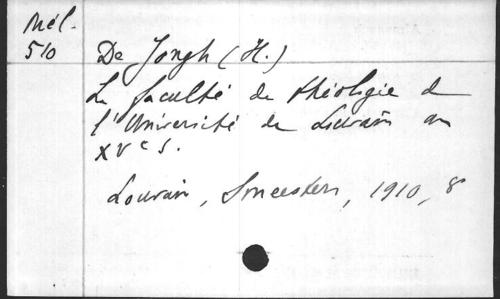 Mél.
510
De Jongh (H.)
La faculté de théologie de
l'Université de Louvain au
XVe s.
Louvain, Smeesters, 1910, 8°